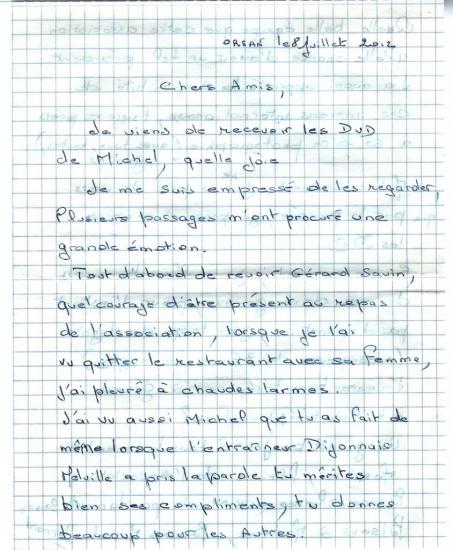 ORSAN le 8 Juillet 2012
Chers Amis,
Je viens de recevoir les DVD
de Michel, quelle joie
Je me suis empressé de les regarder,
Plusieurs passages m'ont procuré une
grande émotion.
Tout d'abord de revoir Gérard Savin,
quel courage d'être présent au repas
de l'association, lorsque je l'ai
vu quitter le restaurant avec sa femme,
j'ai pleuré à chaudes larmes.
J'ai vu aussi Michel que tu as fait de
même lorsque l'entraîneur Dijonnais
Melville a pris la parole tu mérites
bien ses compliments, tu donnes
beaucoup pour les Autres.